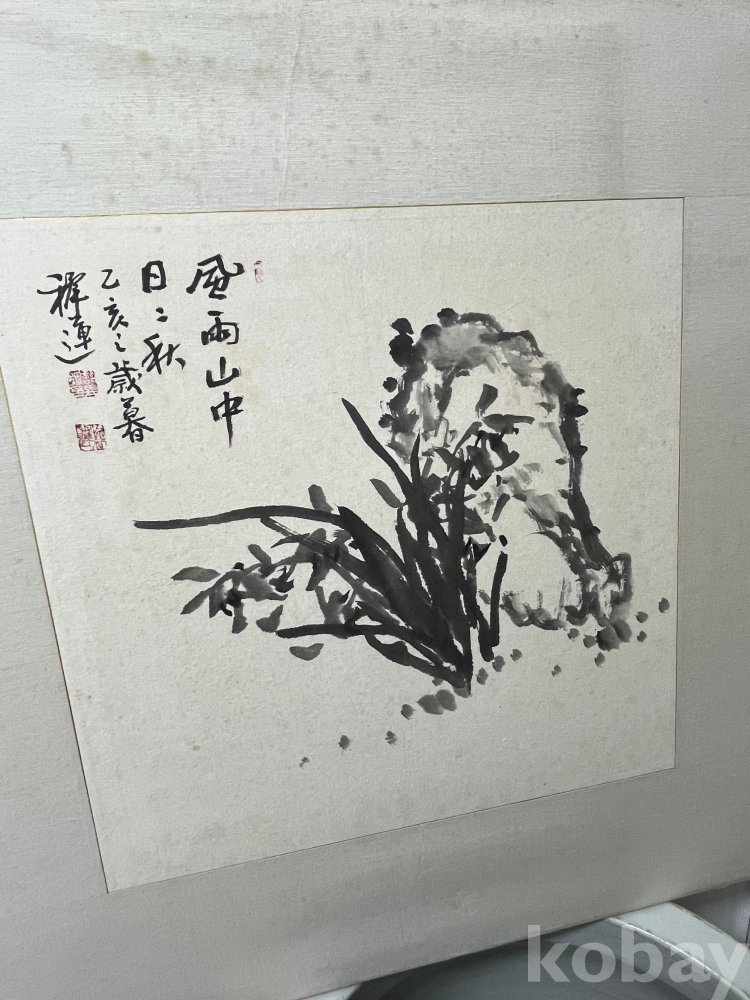 風雨山中
日〻秋
乙亥之歲暮
kobay